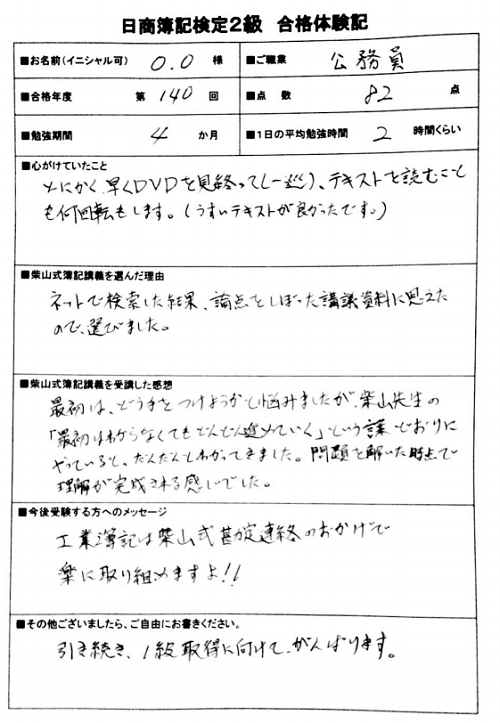 日商簿記検定2級 合格体験記
■お名前(イニシャル可) O.O 様 ■ご職業 公務員
■合格年度 第 140 回 ■点 数 82 点
■勉強期間 4 か月 ■1日の平均勉強時間 2 時間くらい
■心がけていたこと
とにかく早くDVDを見終って(一巡)、テキストを読むこと
も何回転もします。(うすいテキストが良かったです。)
■柴山式簿記講義を選んだ理由
ネットで検索した結果、論点をしぼった講議資料に思えた
ので、選びました。
■柴山式簿記講義を受講した感想
最初は、どう手をつけようかと悩みましたが、柴山先生の
「最初はわからなくてもどんどん進めていく」という言葉どおりに
やっていると、だんだんとわかってきました。問題を解いた時点で
理解が完成される感じでした。
■今後受験する方へのメッセージ
工業簿記は柴山式勘定連絡のおかげで
楽に取り組めますよ!!
■その他ございましたら、ご自由にお書きください。
引き続き、1級取得に向けて、がんばります。